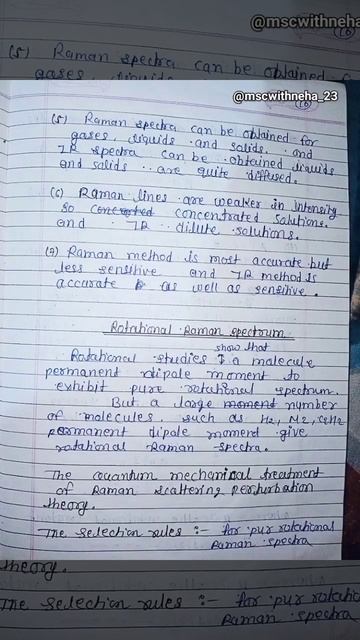 @mscwithneha
(5) Raman spectra can be obtained
gases, liquids
@mscwithneha_23
(5) Raman spectra can be obtained for
gases, liquids and solids. and
IR spectra can be obtained liquids
and solids are quite diffused.
(6) Raman lines are weaker in Intensity
so concentrated solutions.
and IR dilute solutions.
(7) Raman method is most accurate but
less sensitive and IR method is
accurate as well as sensitive.
Rotational Raman spectrum
show that
Rotational studies a molecule
permanent dipole moment to
exhibit pure rotational spectrum.
But a large moment number
of molecules. such as H2, N2, C6H2
permanent dipole moment give
rotational Raman spectra.
The quantum mechanical treatment
of Raman scattering perturbation
theory.
The selection rules :- for pur rotational
Raman spectra
theory.
The selection rules :- for pur rotatio
Raman spectra